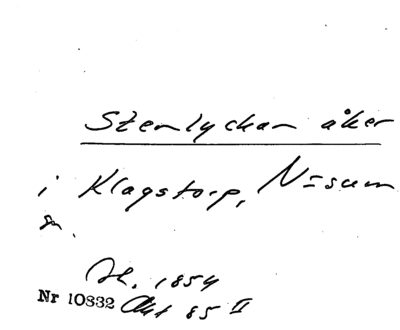 Stenlyckan åker
i Klagstorp, N=sum
sn.
Sk. 1854
Nr 10832 Akt 85 II